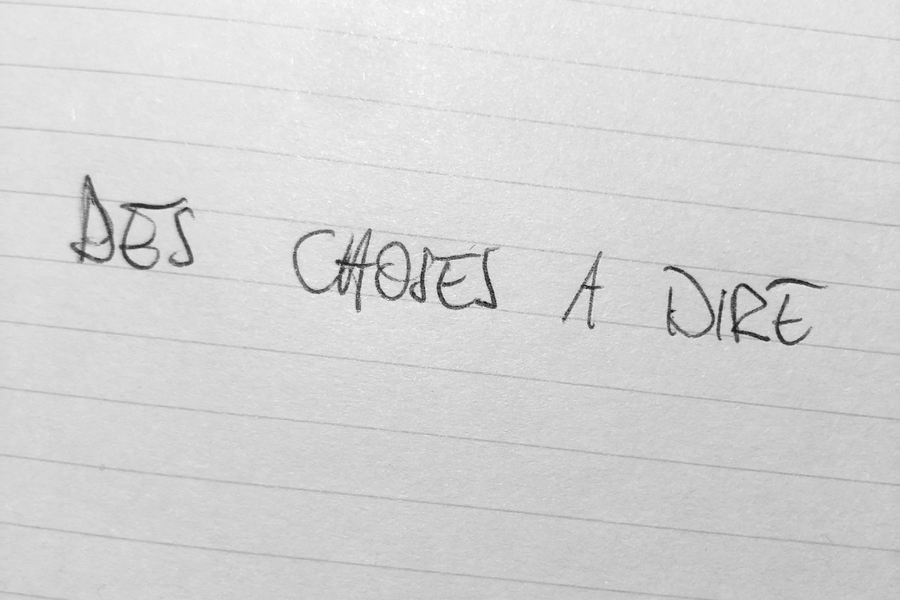 DES CHOSES A DIRE